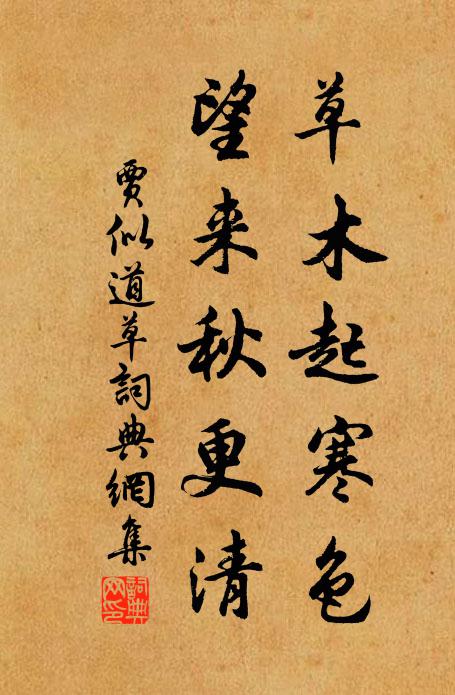 草木起寒色
望来秋更清
賈似道草詞典網集
詞典網印